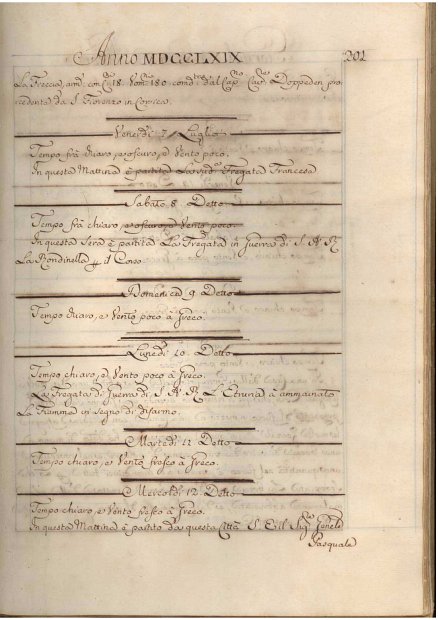 Anno MDCCLXIX 201
La Freccia, arm. con Cni 18. Vom. 180. comd. dal Capno Cavr. Doppeden pro
cedente da S. Fiorenzo in Corsica
Venerdi 7 Luglio
Tempo frà chiaro, e oscuro, e Vento poco.
In questa Mattina è partita La sud. Fregata Francesa
Sabato 8 Detto
Tempo frà chiaro e oscuro, e Vento poco.
In questa Sera è partita La Fregata in Guerra di S. A. R.
La Rondinella il Corso
Domenica 9 Detto
Tempo chiaro, e Vento poco à Greco.
Lunedi 10 Detto
Tempo chiaro, e Vento poco à Greco.
La Fregata di Guerra di S. A. R. L'Etruria à ammainato
La Fiamma in Segno di Disarmo.
Martedi 11 Detto
Tempo chiaro, e Vento fresco à Greco.
Mercoldi 12 Detto
Tempo chiaro, e Vento fresco à Greco.
In questa Mattina è partito da questa Città S. Sigr. Genele
Pasquale